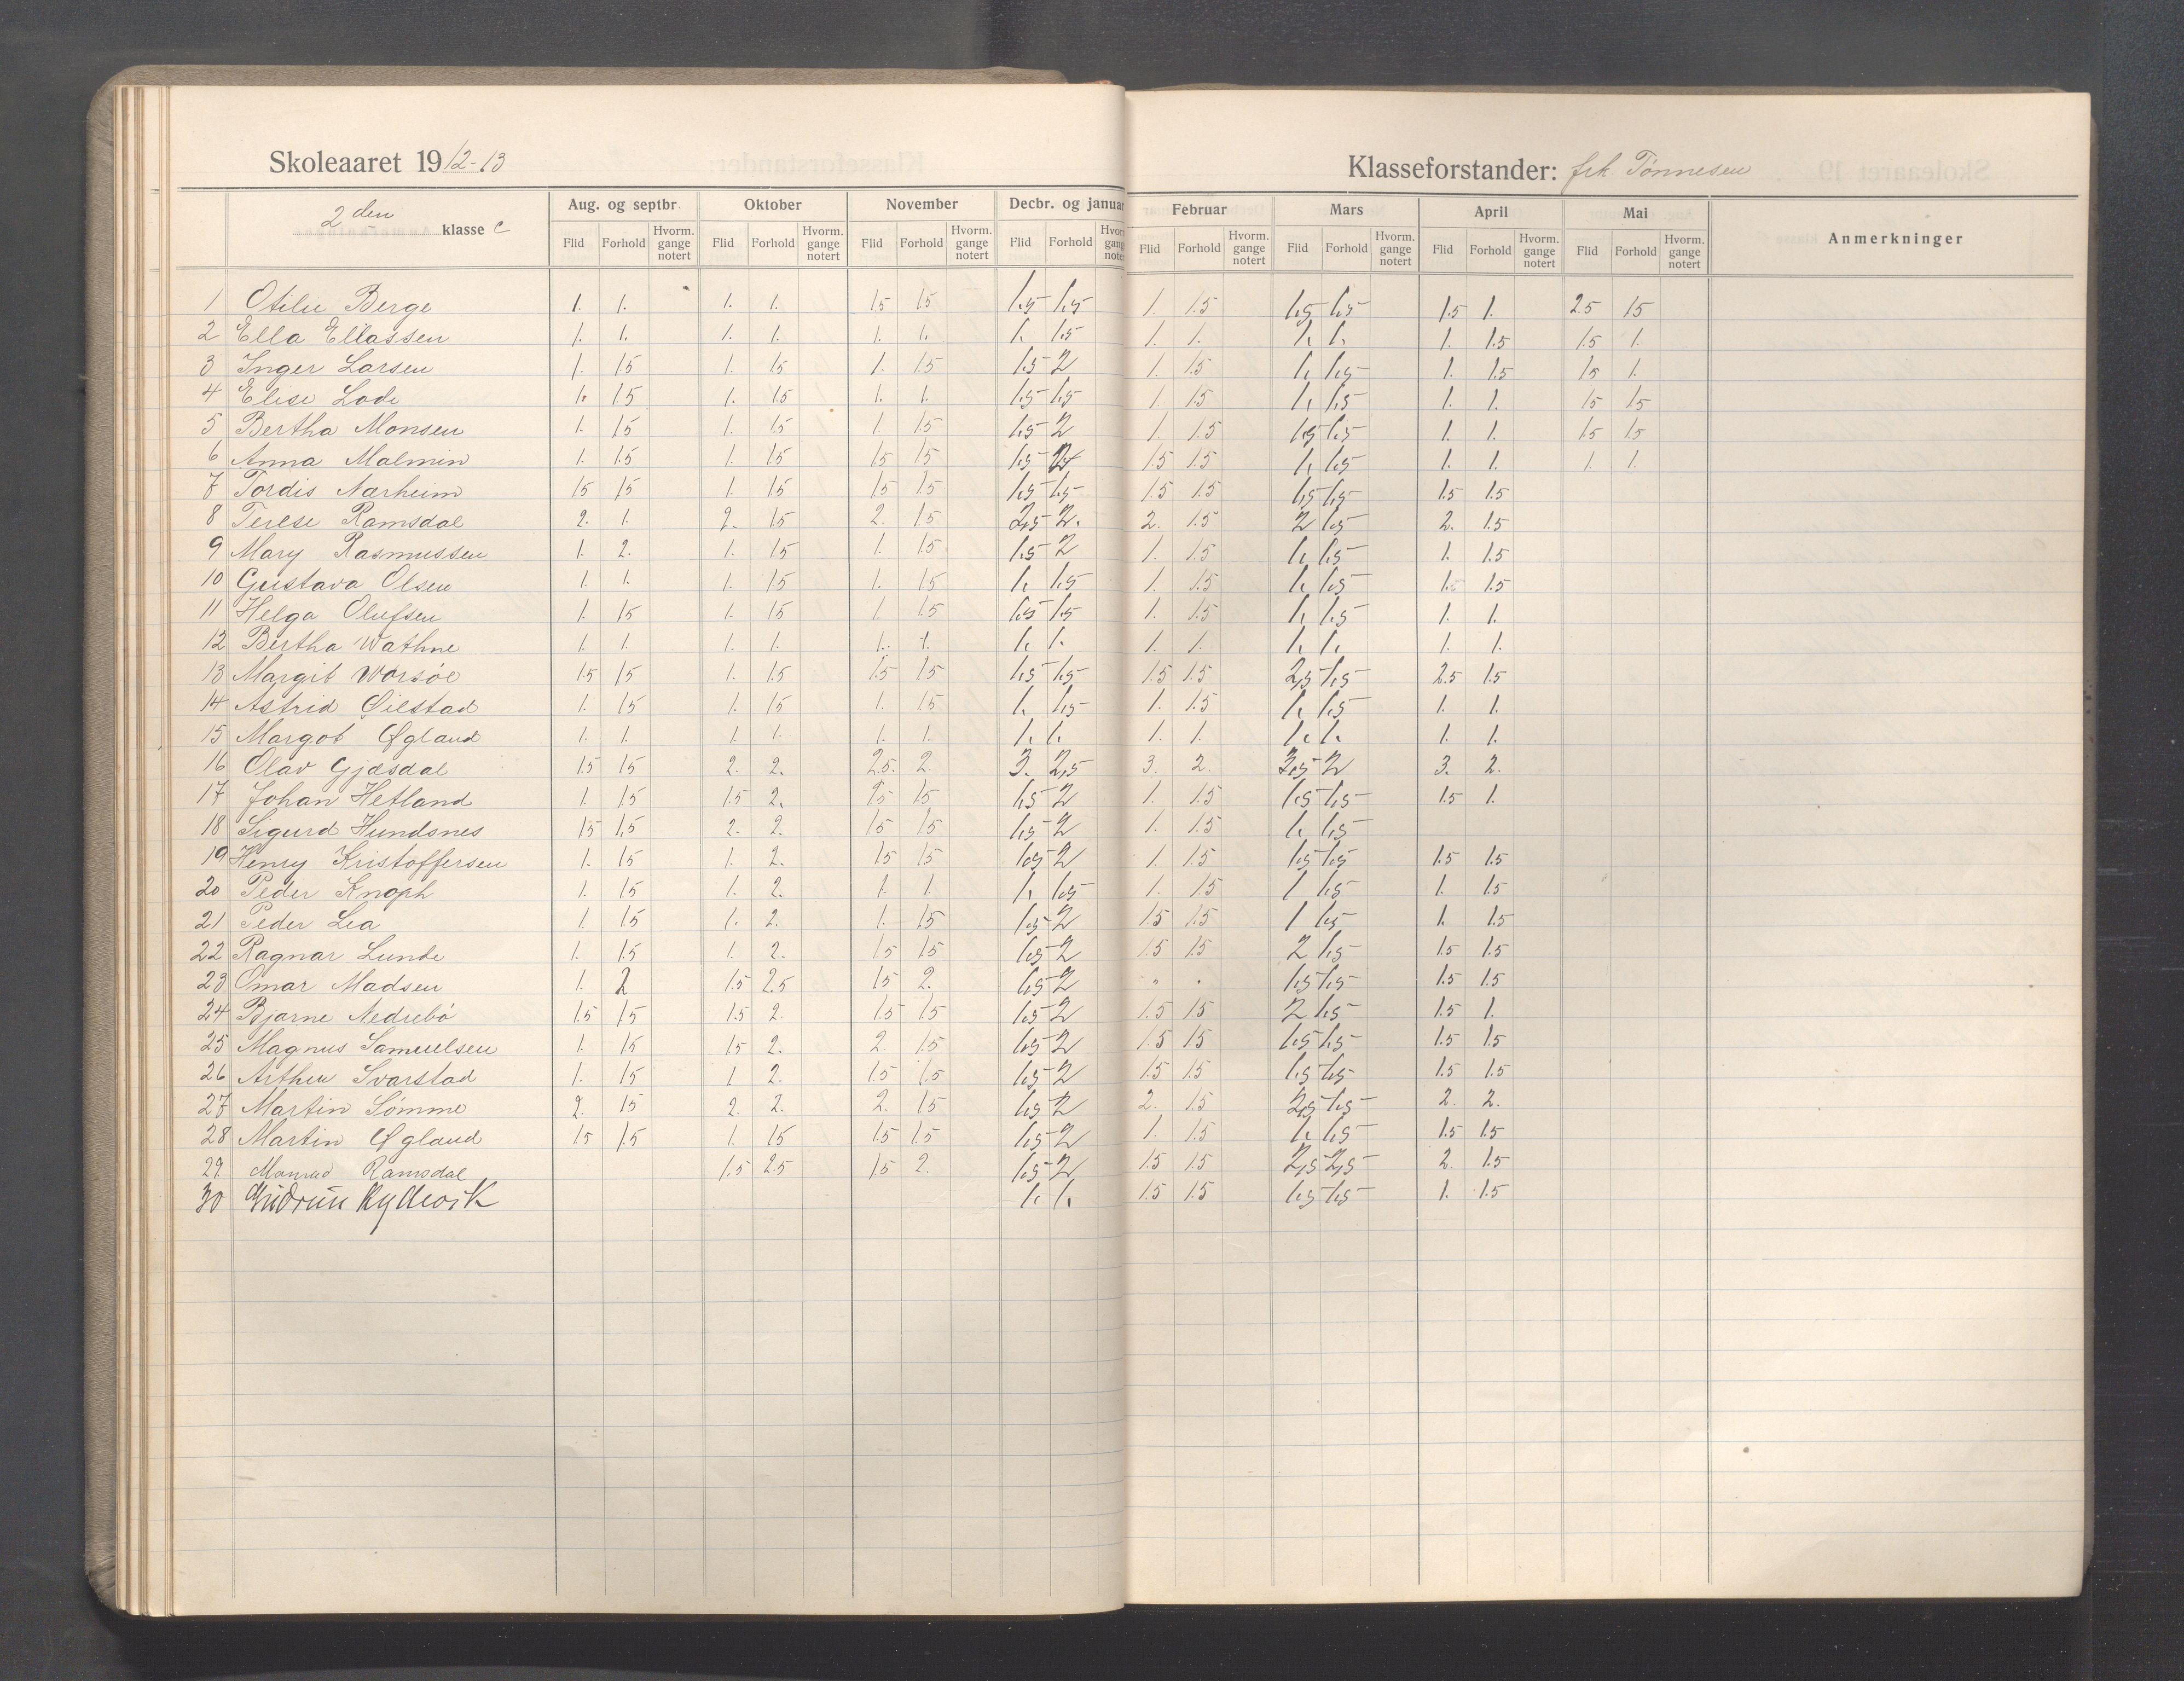 Skoleaaret 1912-13 Klasseforstander: frk. Tønnesen
2den klasse C Aug. og septbr. Oktober November Decbr. og januar Februar Mars April Mai Anmerkninger
Flid Forhold Hvorm. gange notert Flid Forhold Hvorm. gange notert Flid Forhold Hvorm. gange notert Flid Forhold Hvorm. gange notert Flid Forhold Hvorm. gange notert Flid Forhold Hvorm. gange notert Flid Forhold Hvorm. gange notert Flid Forhold Hvorm. gange notert
1 Otilie Berge 1. 1. 1. 1. 15 15 1,5 1,5 1. 1.5 1,5 1,5 1.5 1. 2.5 15
2 Ella Eliassen 1. 1. 1. 1. 1. 1. 1. 1,5 1. 1. 1. 1. 1. 1.5 1.5 1.
3 Inger Larsen 1. 15 1. 15 1. 15 1,5 2 1. 15 1, 1,5 1. 1.5 15 1.
4 Elise Lode 1. 1.5 1. 1.5 1. 1. 1,5 1,5 1. 15 1, 1,5 1. 1. 15 15
5 Bertha Monsen 1. 15 1. 15 1. 15 1,5 2 1. 1.5 1,5 1,5 1. 1. 15 15
6 Anna Malmin 1. 1.5 1. 1.5 15 15 1,5 2 1.5 1.5 1, 1,5 1. 1. 1. 1.
7 Tordis Nærheim 15 15 1. 15 15 1.5 1,5 1,5 1.5 1.5 1,5 1,5 1.5 1.5
8 Terese Ramsdal 2. 1. 2. 15 2. 1.5 2,5 2. 2. 1.5 2 1,5 2. 1.5
9 Mary Rasmussen 1. 2. 1. 15 1. 1.5 1,5 2 1. 1.5 1, 1,5 1. 1.5
10 Gustava Olsen 1. 1. 1. 1.5 1. 15 1, 1,5 1. 1.5 1, 1,5 1. 1.5
11 Helga Olufsen 1. 15 1. 15 1. 1.5 1,5 1,5 1. 1.5 1, 1,5 1. 1.
12 Bertha Wathne 1. 1. 1. 1. 1. 1. 1. 1. 1. 1. 1. 1. 1. 1.
13 Margit Worsöe 1.5 15 1. 1.5 1.5 15 1,5 1,5 1.5 1.5 2,5 1,5 2.5 1.5
14 Astrid Øilstad 1. 15 1. 15 1. 15 1, 1,5 1. 1.5 1, 1,5 1. 1.
15 Margot Øgland 1. 1. 1. 1. 1. 1. 1. 1. 1. 1. 1. 1. 1. 1.
16 Olav Gjæsdal 15 15 2. 2. 2.5. 2. 3. 2,5 3. 2. 3,5 2 3. 2.
17 Johan Hetland 1. 15 1.5 2. 15 15 1,5 2 1. 1.5 1,5 1,5 1.5 1.
18 Sigurd Hundsnes 15 1,5 2. 2. 15 1.5 1,5 2 1. 1.5 1, 1,5
19 Henry Kristoffersen 1. 15 1. 2. 15 15 1,5 2 1. 1.5 1,5 1,5 1.5 1.5
20 Peder Knoph 1. 15 1. 2. 1. 1 1, 1,5 1. 1.5 1 1,5 1. 1.5
21 Peder Lea 1. 15 1. 2. 1. 15 1,5 2 15 1.5 1 1,5 1. 1.5
22 Ragnar Lunde 1. 1.5 1. 2. 15 15 1,5 2 15 1.5 2 1,5 1.5 1.5
23 Omar Madsen 1. 2 1.5 2.5 15 2. 1,5 2 " " 1,5 1,5 1.5 1.5
24 Bjarne Nedrebö 1.5 15 1.5 2 1.5 15 1,5 2 1.5 15 2 1,5 1.5 1.
25 Magnus Samuelsen 1. 15 15 2. 2. 1.5 1,5 2 1.5 15 1,5 1,5 1.5 1.5
26 Arthur Svarstad 1. 15 1 2. 1.5 1.5 1,5 2 1.5 15 1,5 1,5 1.5 1.5
27 Martin Sömme 2. 15 2. 2. 2. 15 1,5 2 2. 1.5 2,5 1,5 2. 2.
28 Martin Øgland 15 1.5 1. 15 1.5 1.5 1,5 2 1. 1.5 1, 1,5 1.5 1.5
29 Ramsdal 1.5 2.5 15 2. 1,5 2 1.5 1.5 2,5 2,5 2. 1.5
30 Gudrun 1. 1. 1.5 1.5 1,5 1,5 1. 1.5